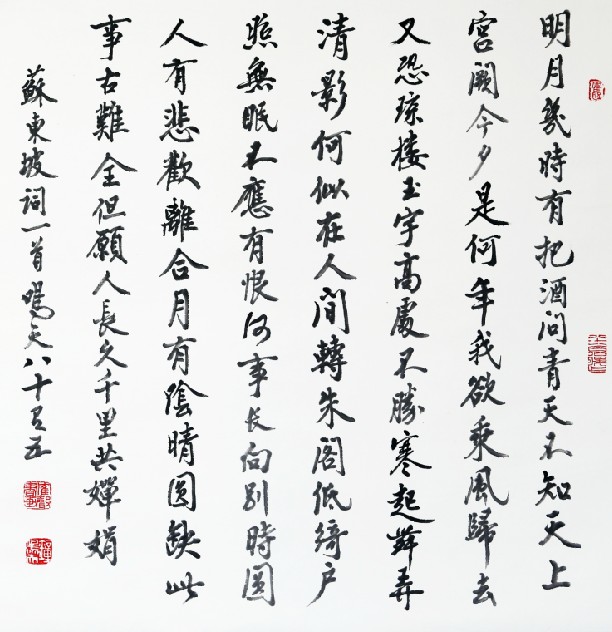 明月幾時有把酒問青天不知天上
宮闕今夕是何年我欲乘風歸去
又恐瓊樓玉宇高處不勝寒起舞弄
清影何似在人間轉朱閣低綺户
照無眠不應有恨何事長向别時圓
人有悲歡離合月有陰晴圓缺此
事古難全但願人長久千里共嬋娟
蘇東坡詞一首鳴天八十又五